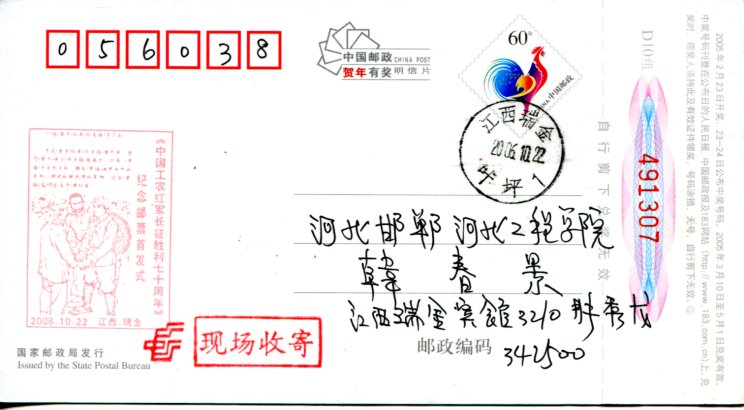 056038
中国邮政 CHINA POST
贺年有奖明信片
60分
CHINA 中国邮政
江西瑞金
2006.10.22
叶坪 1
《中国工农红军长征胜利七十周年》
纪念邮票首发式
2006.10-22 江西.瑞金
河北邯郸河北工程学院
春景
江西瑞金宾馆3210
邮政编码
342500
现场收寄
国家邮政局发行
Issued by the State Postal Bureau
自行剪下兑奖无效
D10组
491307
2005年2月23日开奖，23-24日公布中奖号码，2005年3月10日至5月1日兑奖有效。
中奖号码刊登在公布日的人民日报、中国邮政报及183网站（http://www.183.com.cn）上，兑
奖时，领奖人须持此及有效证件领奖。号码涂损，无号，自行剪下无效。